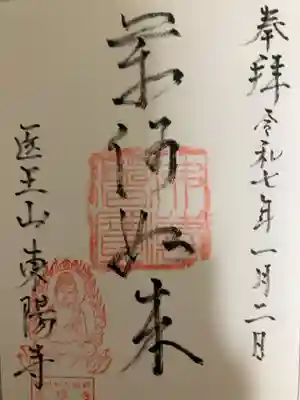 奉拝 令和七年一月二日
薬師如来
医王山東陽寺